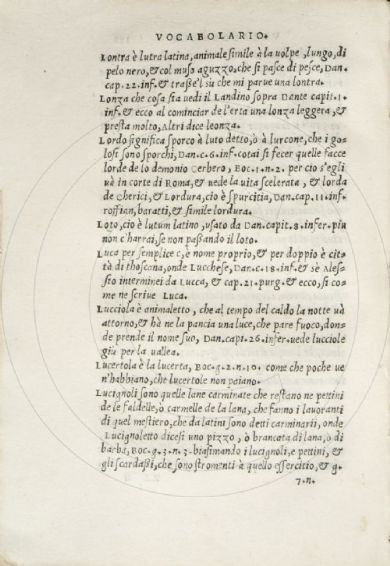 VOCABOLARIO.
Lontra è lutra latina, animale simile à la uolpe, lungo, di
pelo nero, & col muso aguzzo, che si pasce di pesce, Dan.
cap. 22. inf. & trasse'l sù che mi parue una lontra.
Lonza che cosa sia uedi il Landino sopra Dante capit. 1.
inf. & ecco al cominciar de l'erta una lonza leggera, &
presta molto, Altri dice leonza.
Lordo significa sporco è luto detto, ò à lurcone, che i go-
losi sono sporchi, Dan. c. 6. inf. cotai si fecer quelle facce
lorde de lo demonio Cerbero, Boc. 1. n. 2. per cio s'egli
uà in corte di Roma, & uede la uita scelerata, & lorda
de cherici, & Lordura, cio è spurcitia, Dan. cap. 11. inf.
roffian, baratti, & simile lordura.
Loto, cio è lutum latino, usato da Dan. capit. 8. infer. piu
non c'harrai, se non passando il loto.
Luca per semplice c, è nome proprio, & per doppio è cit-
tà di thoscana, onde Lucchese, Dan. c. 18. inf. & sè Ales-
sio interminei da Lucca, & cap. 21. purg. & ecco, si co-
me ne scriue Luca.
Lucciola è animaletto, che al tempo del caldo la notte uà
attorno, & hà ne la pancia una luce, che pare fuoco, don-
de prende il nome suo, Dan. capi. 26. infer. uede lucciole
giù per la uallea.
Lucertola è la lucerta, Boc. g. 2. n. 10. come che poche ue
n'habbiano, che lucertole non paiano.
Lucignoli sono quelle lane carminate che restano ne pettini
de le faldelle, ò carmelle de la lana, che fanno i lauoranti
di quel mestiero, che da latini sono detti carminarii, onde
Lucignoletto dicesi uno pizzo, ò brancata di lana, ò di
barba, Boc. g. 3. n. 3. biasimando i lucignoli, e pettini, &
gli scardassi, che sono stromenti à quello essercitio, & g.
7. n.